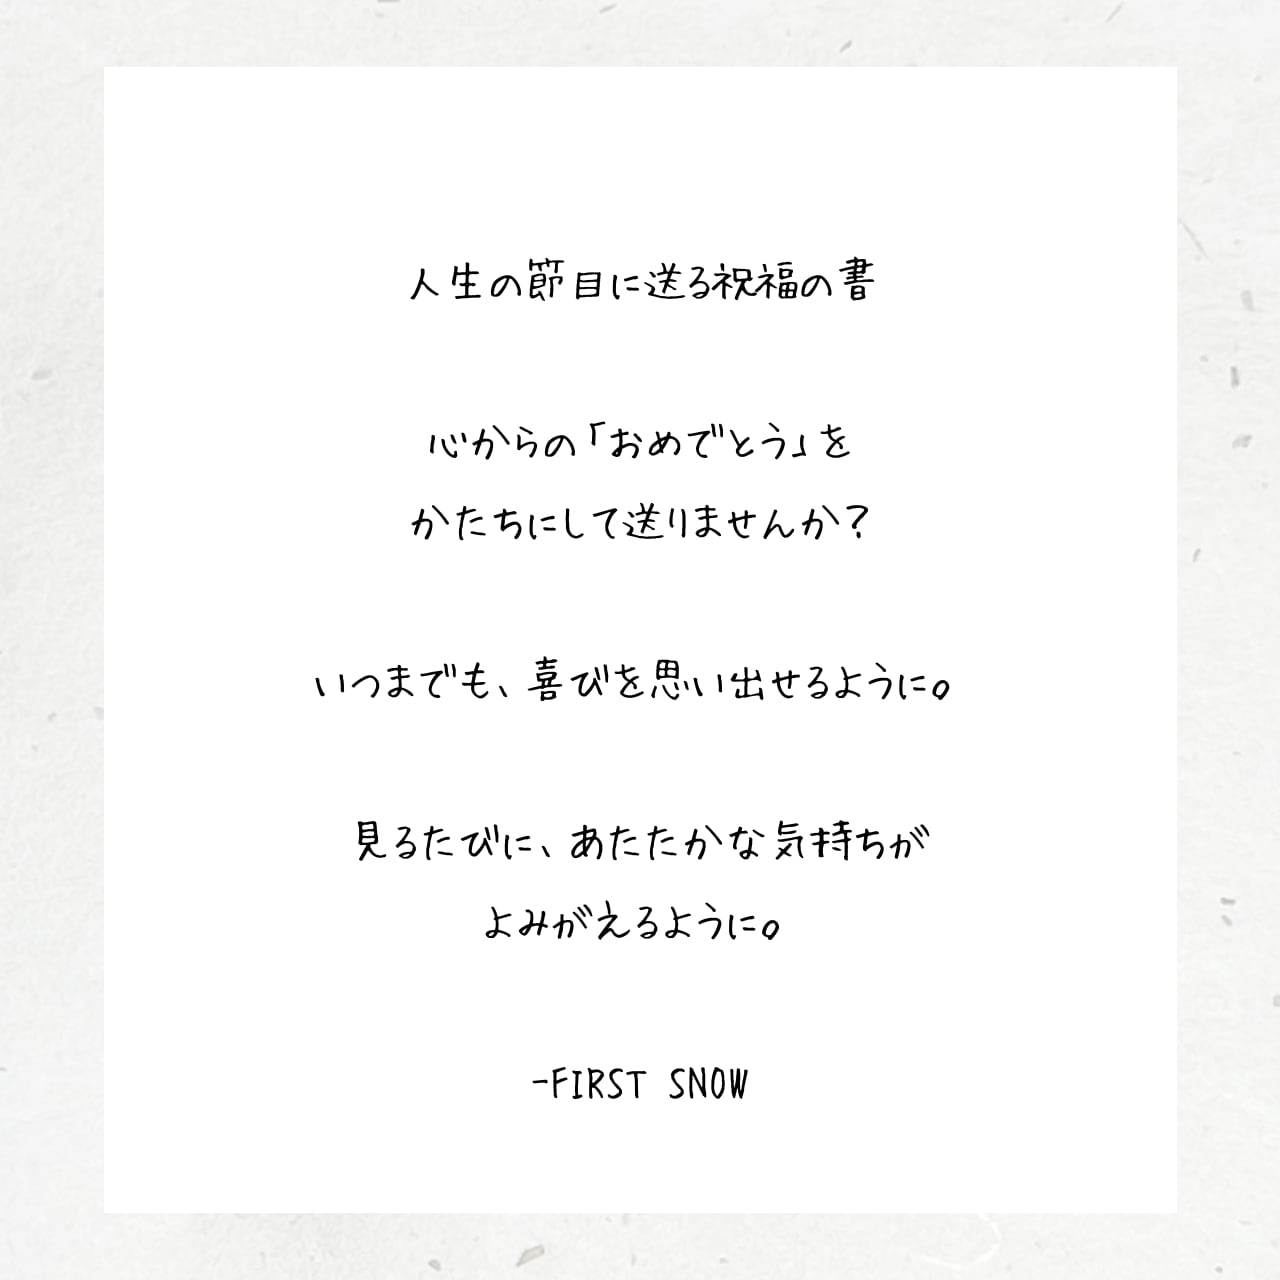 人生の節目に送る祝福の書
心からの「おめでとう」を
かたちにして送りませんか？
いつまでも、喜びを思い出せるように。
見るたびに、あたたかな気持ちが
よみがえるように。
-FIRST SNOW